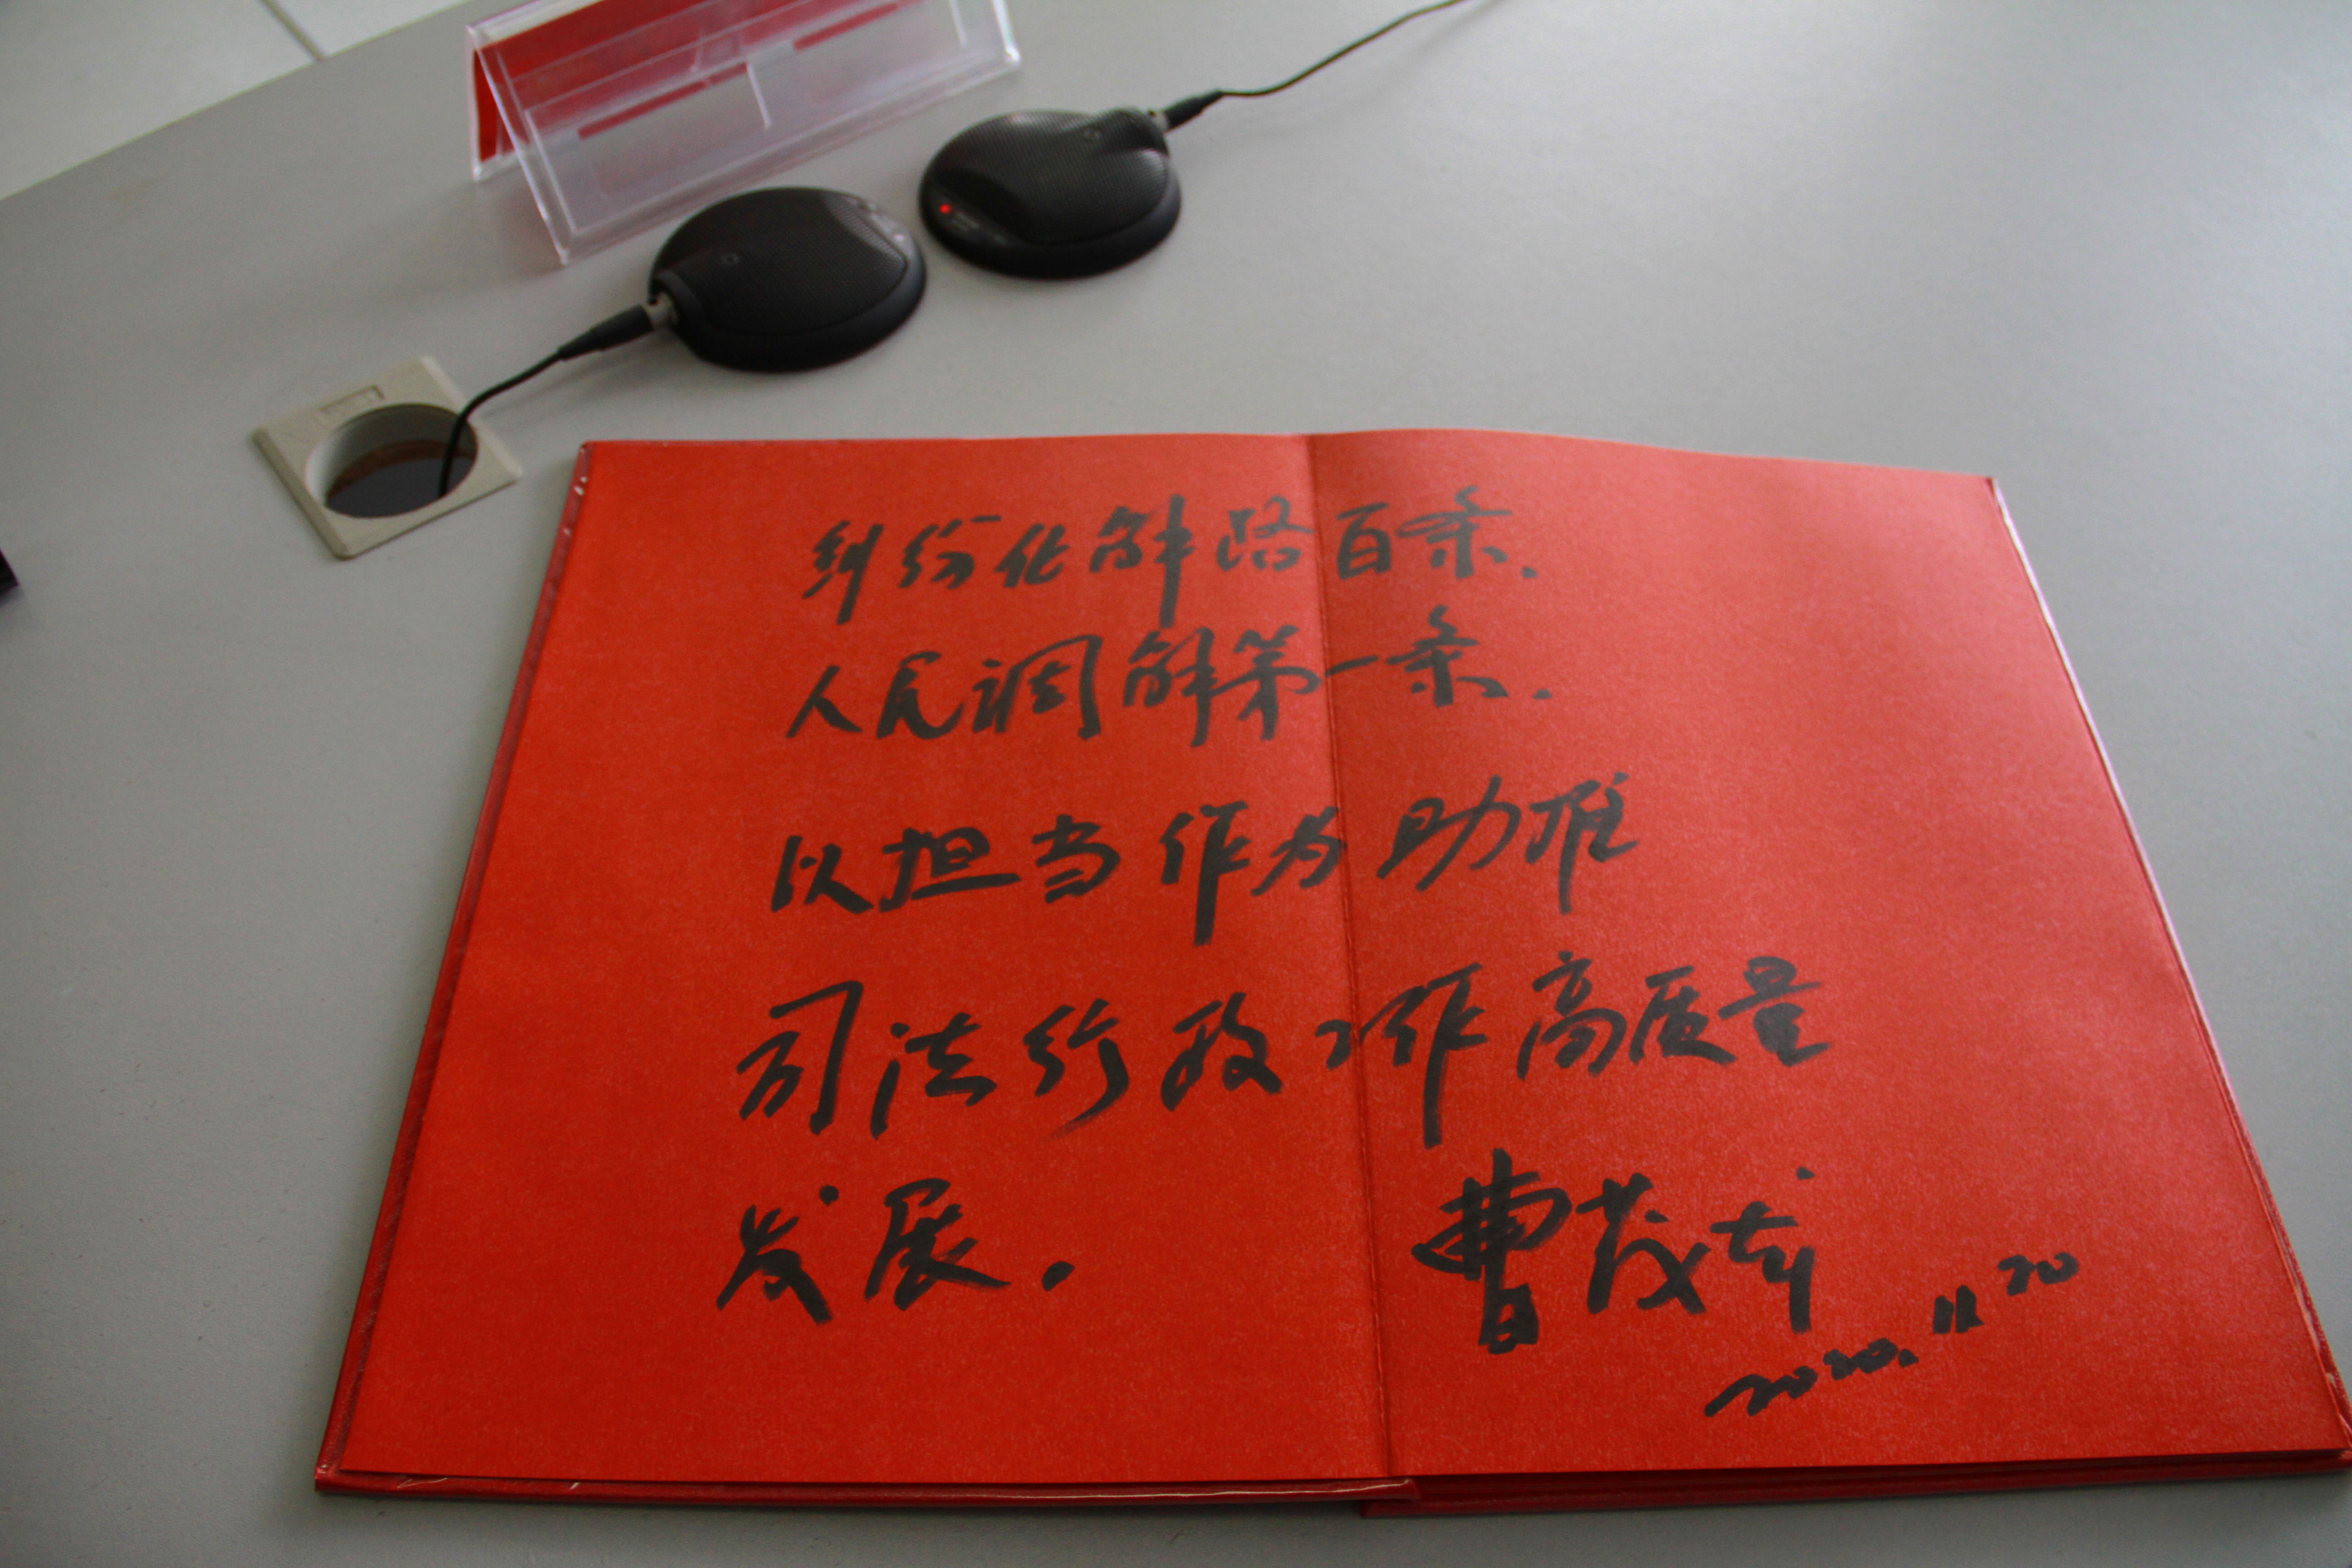 纠纷化解路百条.
人民调解第一条.
以担当作为助推
司法行政工作高质量
发展.
曹茂
2020.11.20